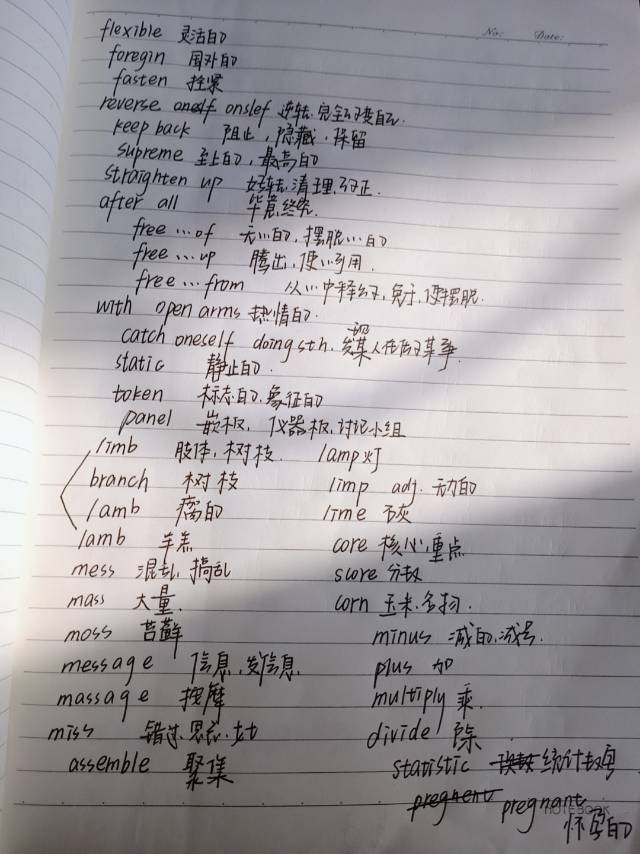 No: Date:
flexible 灵活的
foregin 国外的
fasten 拴紧
reverse onslef 逆转.完全改变自己.
keep back 阻止,隐藏.保留
supreme 至上的,最高的
straighten up 好转.清理.改正.
after all 毕竟,终究.
free…of 无…的,摆脱…的
free…up 腾出,使…可用.
free…from 从…中释放,免于,使摆脱.
with open arms 热情的.
catch oneself doing sth.
static 静止的.
token 标志的.象征的
panel 嵌板, 仪器板,讨论小组
limb 肢体,树枝. lamp 灯
branch 树枝 limp adj. 无力的
lamb 瘸的 lime 石灰
lamb 羊羔 core 核心,重点
mess 混乱,搞乱 score 分数
mass 大量. corn 玉米.
moss 苔藓 minus 减的.减号.
message 信息,发信息. plus 加
massage 按摩 multiply 乘.
miss 错过.思念. divide 除
assemble 聚集 statistic 统计数字
pregnant
NOTEBOOK
怀孕的